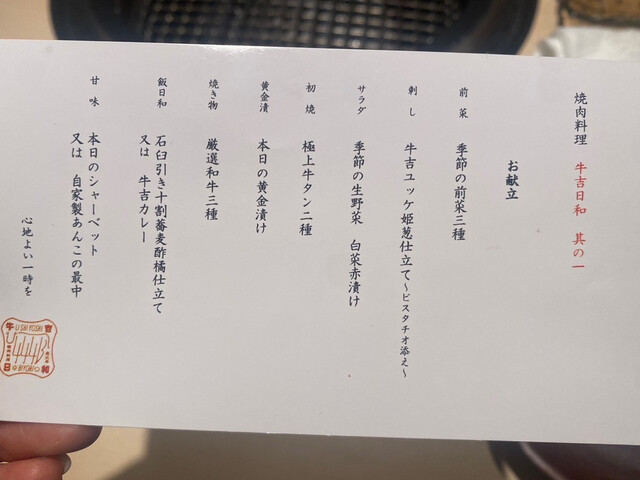 焼肉料理 牛吉日和 其の一
お献立
前菜 季節の前菜三種
刺し 牛吉ユッケ姫葱仕立て〜ピスタチオ添え〜
サラダ 季節の生野菜 白菜赤漬け
初焼 極上牛タン二種
黄金漬 本日の黄金漬け
焼き物 厳選和牛三種
飯日和 石臼引き十割蕎麦酢橘仕立て
又は 牛吉カレー
甘味 本日のシャーベット
又は 自家製あんこの最中
心地よい一時を
牛吉
USHIYOSHI
BIYORI
日和